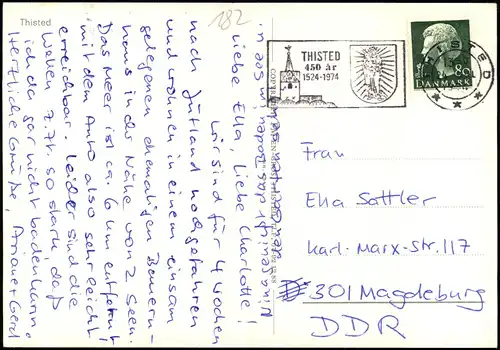 Thisted
182
THISTED
450 år
1524-1974
THISTED
80
DANMARK
Liebe Ella, liebe Charlotte!
Wir sind für 4 Wochen
nach Jütland hochgefahren
und wohnen in einem einsam
gelegenen ehemaligen Bauern-
haus in der Nähe von 2 Seen.
Das Meer ist ca. 6 km entfernt,
mit dem Auto also sehr leicht
erreichbar. Leider sind die
Wellen z.Zt. so stark, daß
ich da gar nicht baden kann.
Herzliche Grüße,
Gerd
das Baden im See
Frau
Ella Sattler
Karl-Marx-Str. 117
301 Magdeburg
DDR